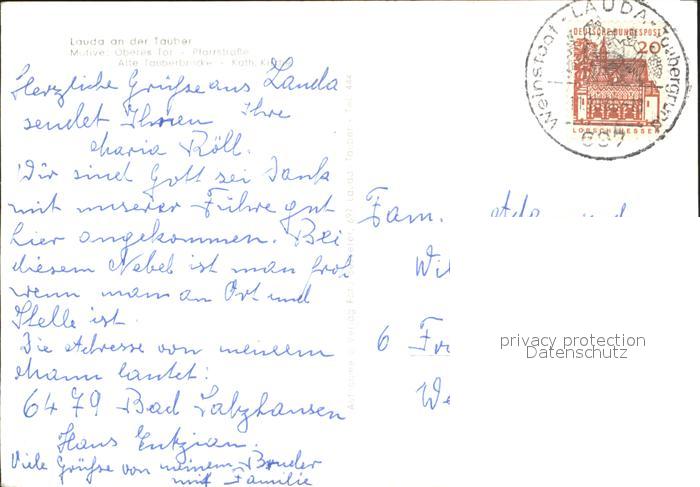 Lauda an der Tauber
Motive: Oberes Tor - Pfarrstraße
Alte Tauberbrücke - Kath. Kirche
WEINSTADT - LAUDA - Taubergrund
697
DEUTSCHE BUNDESPOST
20
LORSCH/HESSEN
Herzliche Grüße aus Lauda
sendet Ihnen Ihre
Maria Röll.
Wir sind Gott sei Dank
mit unserer Führe gut
hier angekommen. Bei
diesem Nebel ist man froh
wenn man an Ort und
Stelle ist.
Die Adresse von meinem
Mann lautet:
6479 Bad Salzhausen
Haus Enzian.
Viele Grüße von meinem Bruder
mit Familie
Fam.
6
privacy protection
Datenschutz